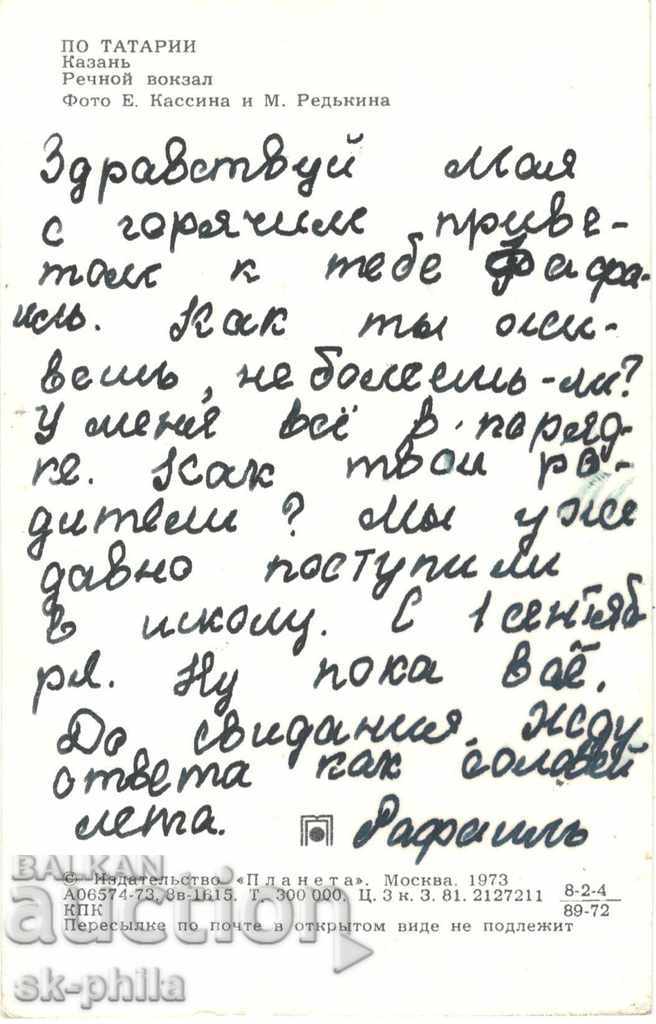 ПО ТАТАРИИ
Казань
Речной вокзал
Фото Е. Кассина и М. Редькина
Здравствуй Мая
с горячим приве-
том к тебе Рафа-
иль. Как ты жи-
вешь, не болеешь-ли?
У меня всё в порядке
ке. Как твои ро-
дители? Мы уже
давно поступили
в школу. С 1 сентяб
ря. Ну пока всё.
До свидания. Жду
ответа как соловей
лета. Рафаиль
© Издательство «Планета». Москва. 1973
А06574-73, 8в-1615. Т. 300 000. Ц. 3 к. З. 81. 2127211 8-2-4
КПК 89-72
Пересылке по почте в открытом виде не подлежит
BALKAN
auction
sk-phila